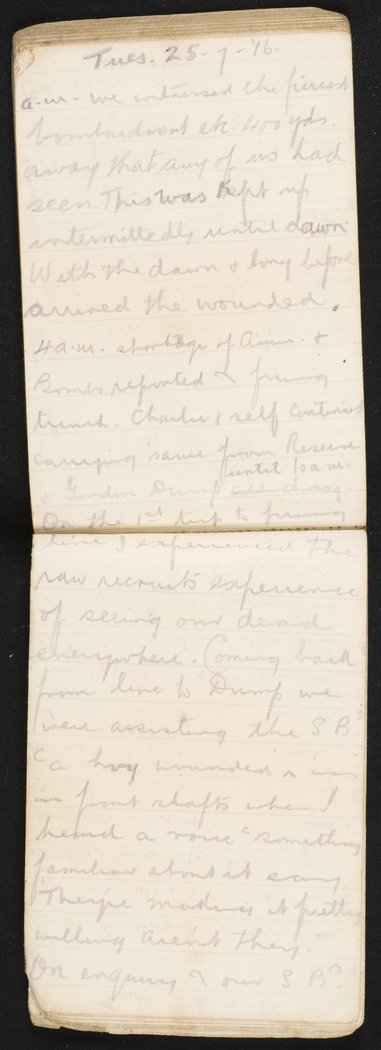 Tues. 25-7-'16.
a.m. we witnessed the fiercest
bombardment etc. 400 yds.
away that any of us had
seen. This was kept up
intermittedly until dawn.
With the dawn & long before
arrived the wounded.
4 a.m. shortage of Amm. &
Bombs reported firing
trench. Charlie & self continued
carrying same from Reserve
until 10 a.m.
& Gordon Dump
On the 1st trip to firing
line I experienced the
raw recruits experience
of seeing our dead
everywhere. Coming back
from line to Dump we
were assisting the S B's
a hvy wounded & was
in front shafts when I
heard a voice "something
familiar about it say
"They're making it pretty
willing aren't they."
On enquiry of our S B's.